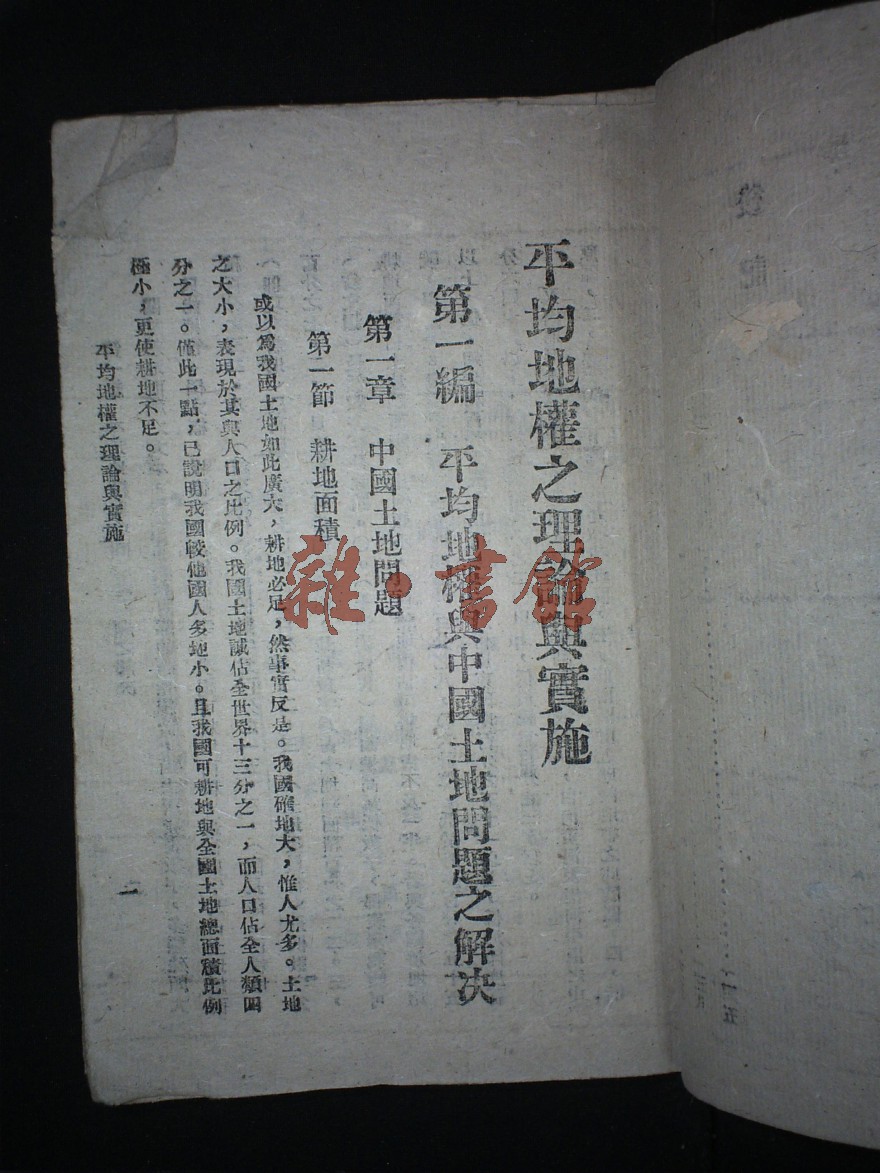 平均地權之理論與實施
第一編　平均地權與中國土地問題之解決
第一章　中國土地問題
第一節　耕地面積
或以爲我國土地如此廣大，耕地必足，然事實反是。我國確地大，惟人尤多。土地
之大小，表現於其與人口之比例。我國土地誠佔全世界十三分之一，而人口佔全人類四
分之一。僅此一點，已說明我國較他國人多地小。且我國可耕地與全國土地總面積比例
極小，更使耕地不足。
平均地權之理論與實施
一
後記
一五
雜·書館